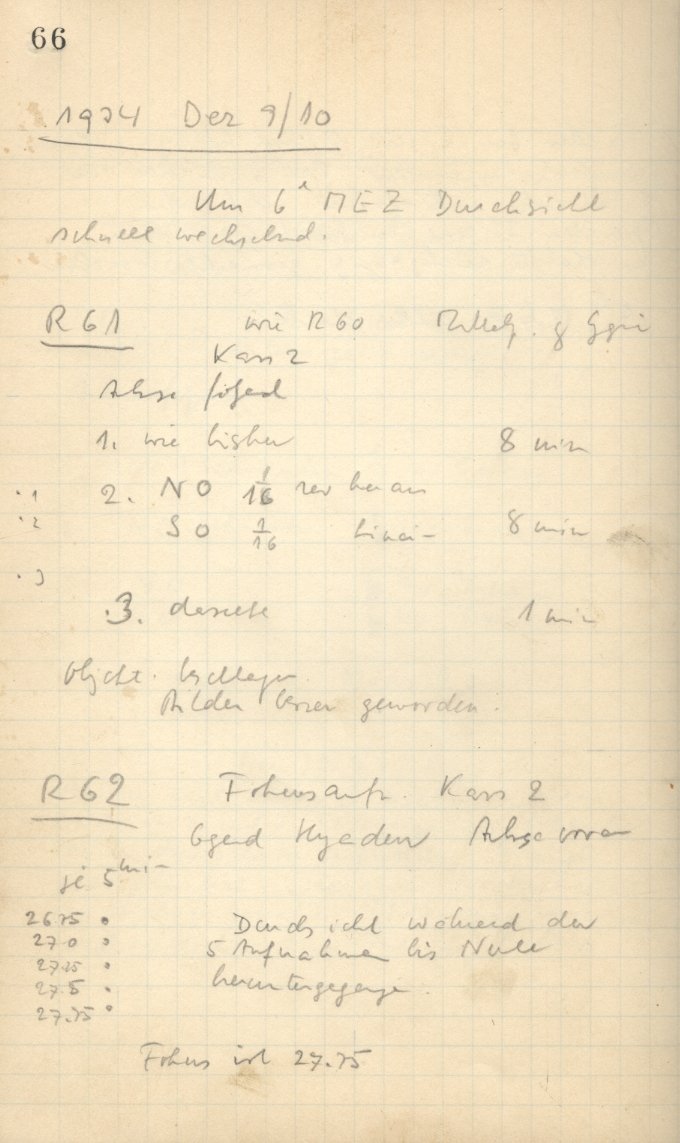 66
1934 Dez 9/10
Um 6h MEZ Durchsicht
schnell wechselnd.
R 61 wie R 60
Kass 2
Achse folgend
1. wie bisher 8 min
2. NO 1/16 rev heraus
SO 1/16 hinein 8 min
.1
.2
.3
.3. dasselbe 1 min
Objekt. beschlagen
Bilder besser geworden.
R 62 Fokusaufn. Kass 2
Ggend Hyaden Achse voran
je 5 min
2675
27.0
27.25
27.5
27.75
Durchsicht während der
5 Aufnahmen bis Null
heruntergegangen.
Fokus ist 27.75